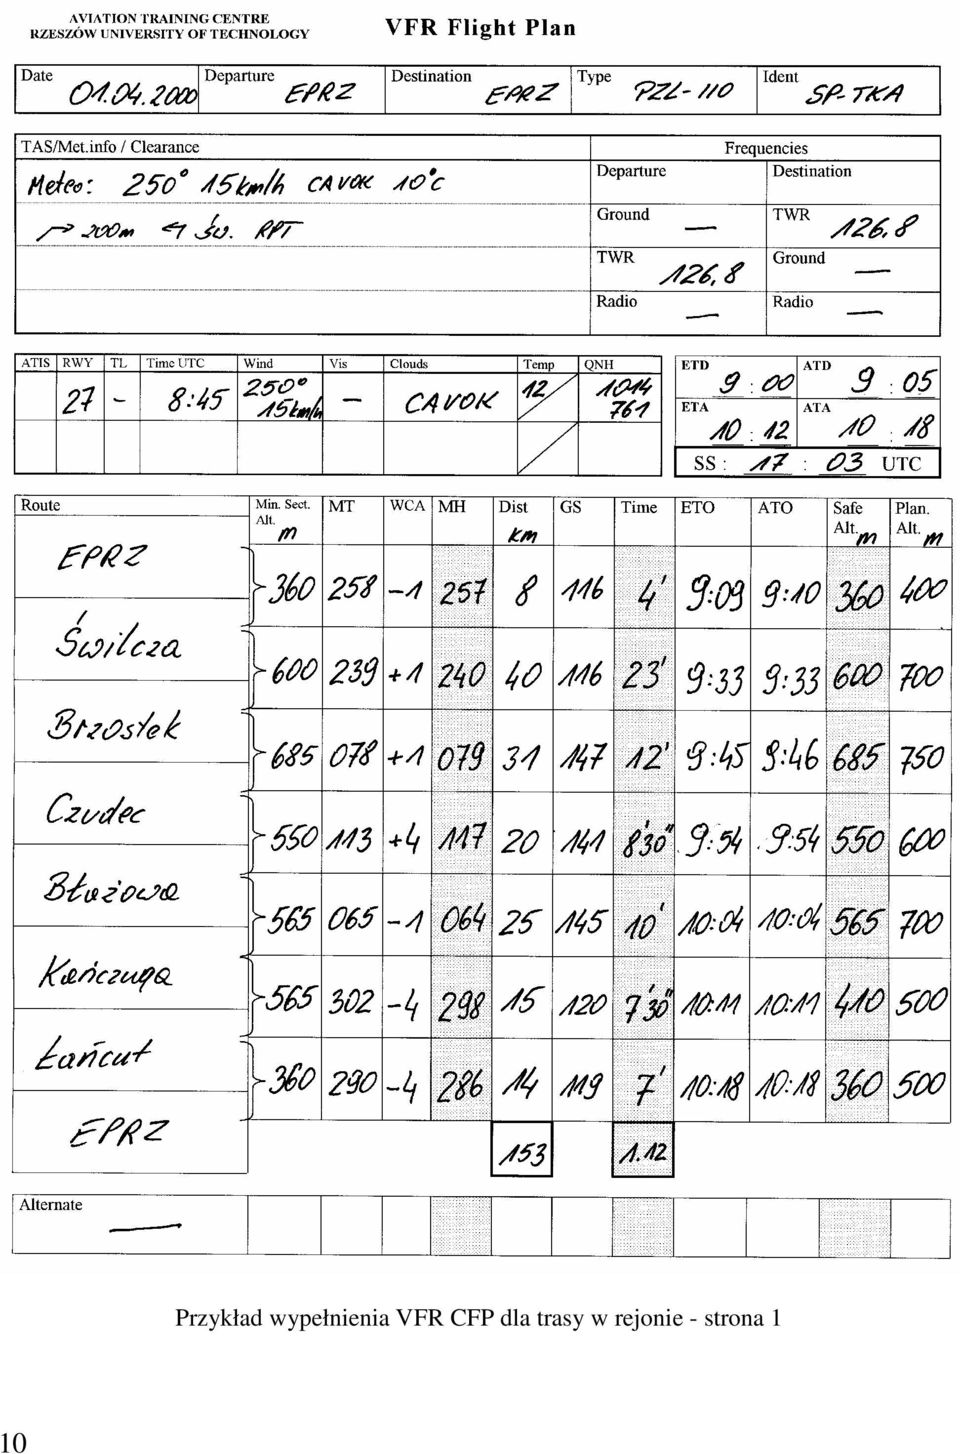 AVIATION TRAINING CENTRE
RZESZÓW UNIVERSITY OF TECHNOLOGY
VFR Flight Plan
Date 01.04.2000 Departure EPRZ Destination EPRZ Type PZL-110 Ident SP-TKA
TAS/Met.info / Clearance Frequencies
Meteo: 250° 15km/h CAVOK 10°C Departure Destination
200m św. RPT Ground — TWR 126,8
TWR 126,8 Ground —
Radio — Radio —
ATIS RWY TL Time UTC Wind Vis Clouds Temp QNH
27 - 8:45 250° 15km/h — CAVOK 12/ 1014 761
ETD 9:00 ATD 9:05
ETA 10:12 ATA 10:18
SS: 17:03 UTC
Route Min. Sect. Alt. m MT WCA MH Dist km GS Time ETO ATO Safe Alt. m Plan. Alt. m
EPRZ
360 258 -1 257 8 116 4' 9:09 9:10 360 400
Świlcza
600 239 +1 240 40 116 23' 9:33 9:33 600 700
Brzostek
685 078 +1 079 31 147 12' 9:45 9:46 685 750
Czudec
550 113 +4 117 20 141 8'30" 9:54 9:54 550 600
Błażowa
565 065 -1 064 25 145 10' 10:04 10:04 565 700
Kańczuga
565 302 -4 298 15 120 7'30" 10:11 10:11 410 500
Łańcut
360 290 -4 286 14 119 7' 10:18 10:18 360 500
EPRZ
153 1.12
Alternate
—
Przykład wypełnienia VFR CFP dla trasy w rejonie - strona 1
10